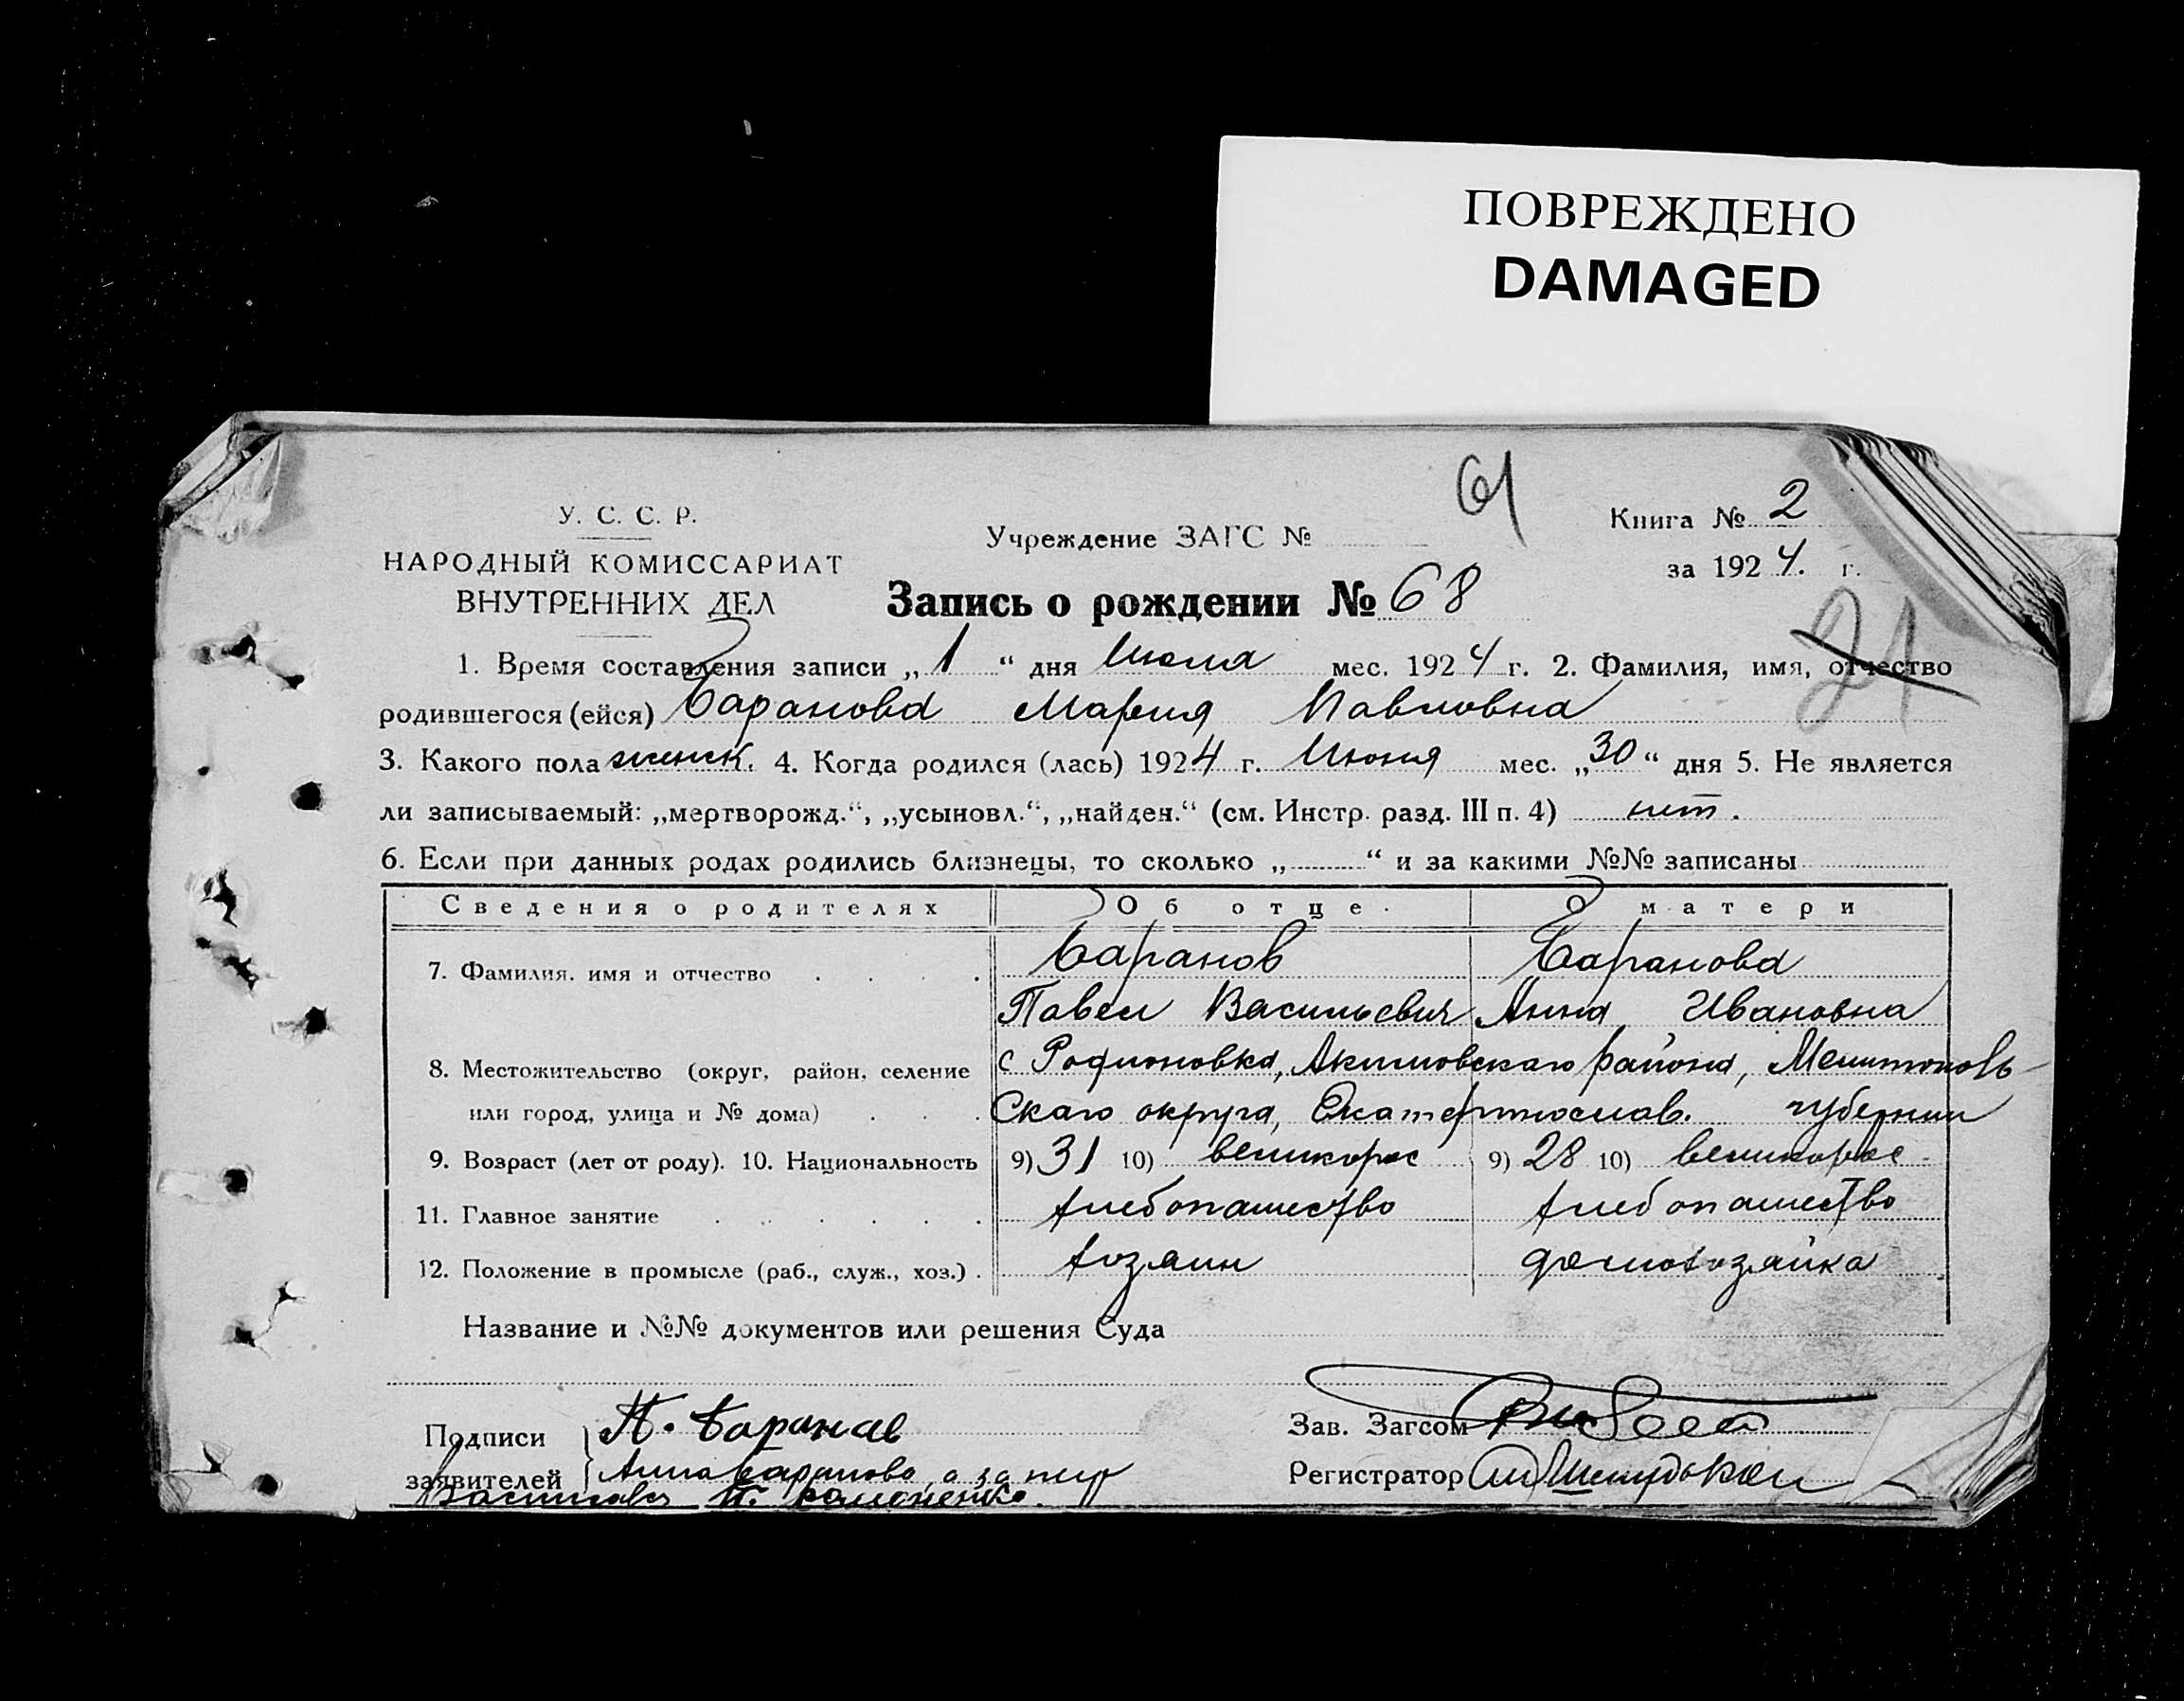 ПОВРЕЖДЕНО
DAMAGED
61
У. С. С. Р.
НАРОДНЫЙ КОМИССАРИАТ
ВНУТРЕННИХ ДЕЛ
Учреждение ЗАГС №
Книга № 2
за 1924. г.
Запись о рождении № 68
21
1. Время составления записи „1“ дня Июля мес. 1924 г. 2. Фамилия, имя, отчество
родившегося (ейся) Баранова Мария Павловна
3. Какого пола женск. 4. Когда родился (лась) 1924 г. Июня мес. „30“ дня 5. Не является
ли записываемый: „мертворожд.“, „усыновл.“, „найден.“ (см. Инстр. разд. III п. 4) нет.
6. Если при данных родах родились близнецы, то сколько „ “ и за какими №№ записаны
Сведения о родителях Об отце. О матери
7. Фамилия, имя и отчество Баранов Баранова
Павел Васильевич Анна Ивановна
8. Местожительство (округ, район, селение с Родионовка, Акимовскаго района, Мелитополь-
или город, улица и № дома) скаго округа, Екатеринослав. губернии
9. Возраст (лет от роду). 10. Национальность 9) 31 10) великорос 9) 28 10) великорос
11. Главное занятие хлебопашество хлебопашество
12. Положение в промысле (раб., служ., хоз.) хозяин домохозяйка
Название и №№ документов или решения Суда
Подписи П. Баранов Зав. Загсом
заявителей Анна Баранова, а за негр Регистратор